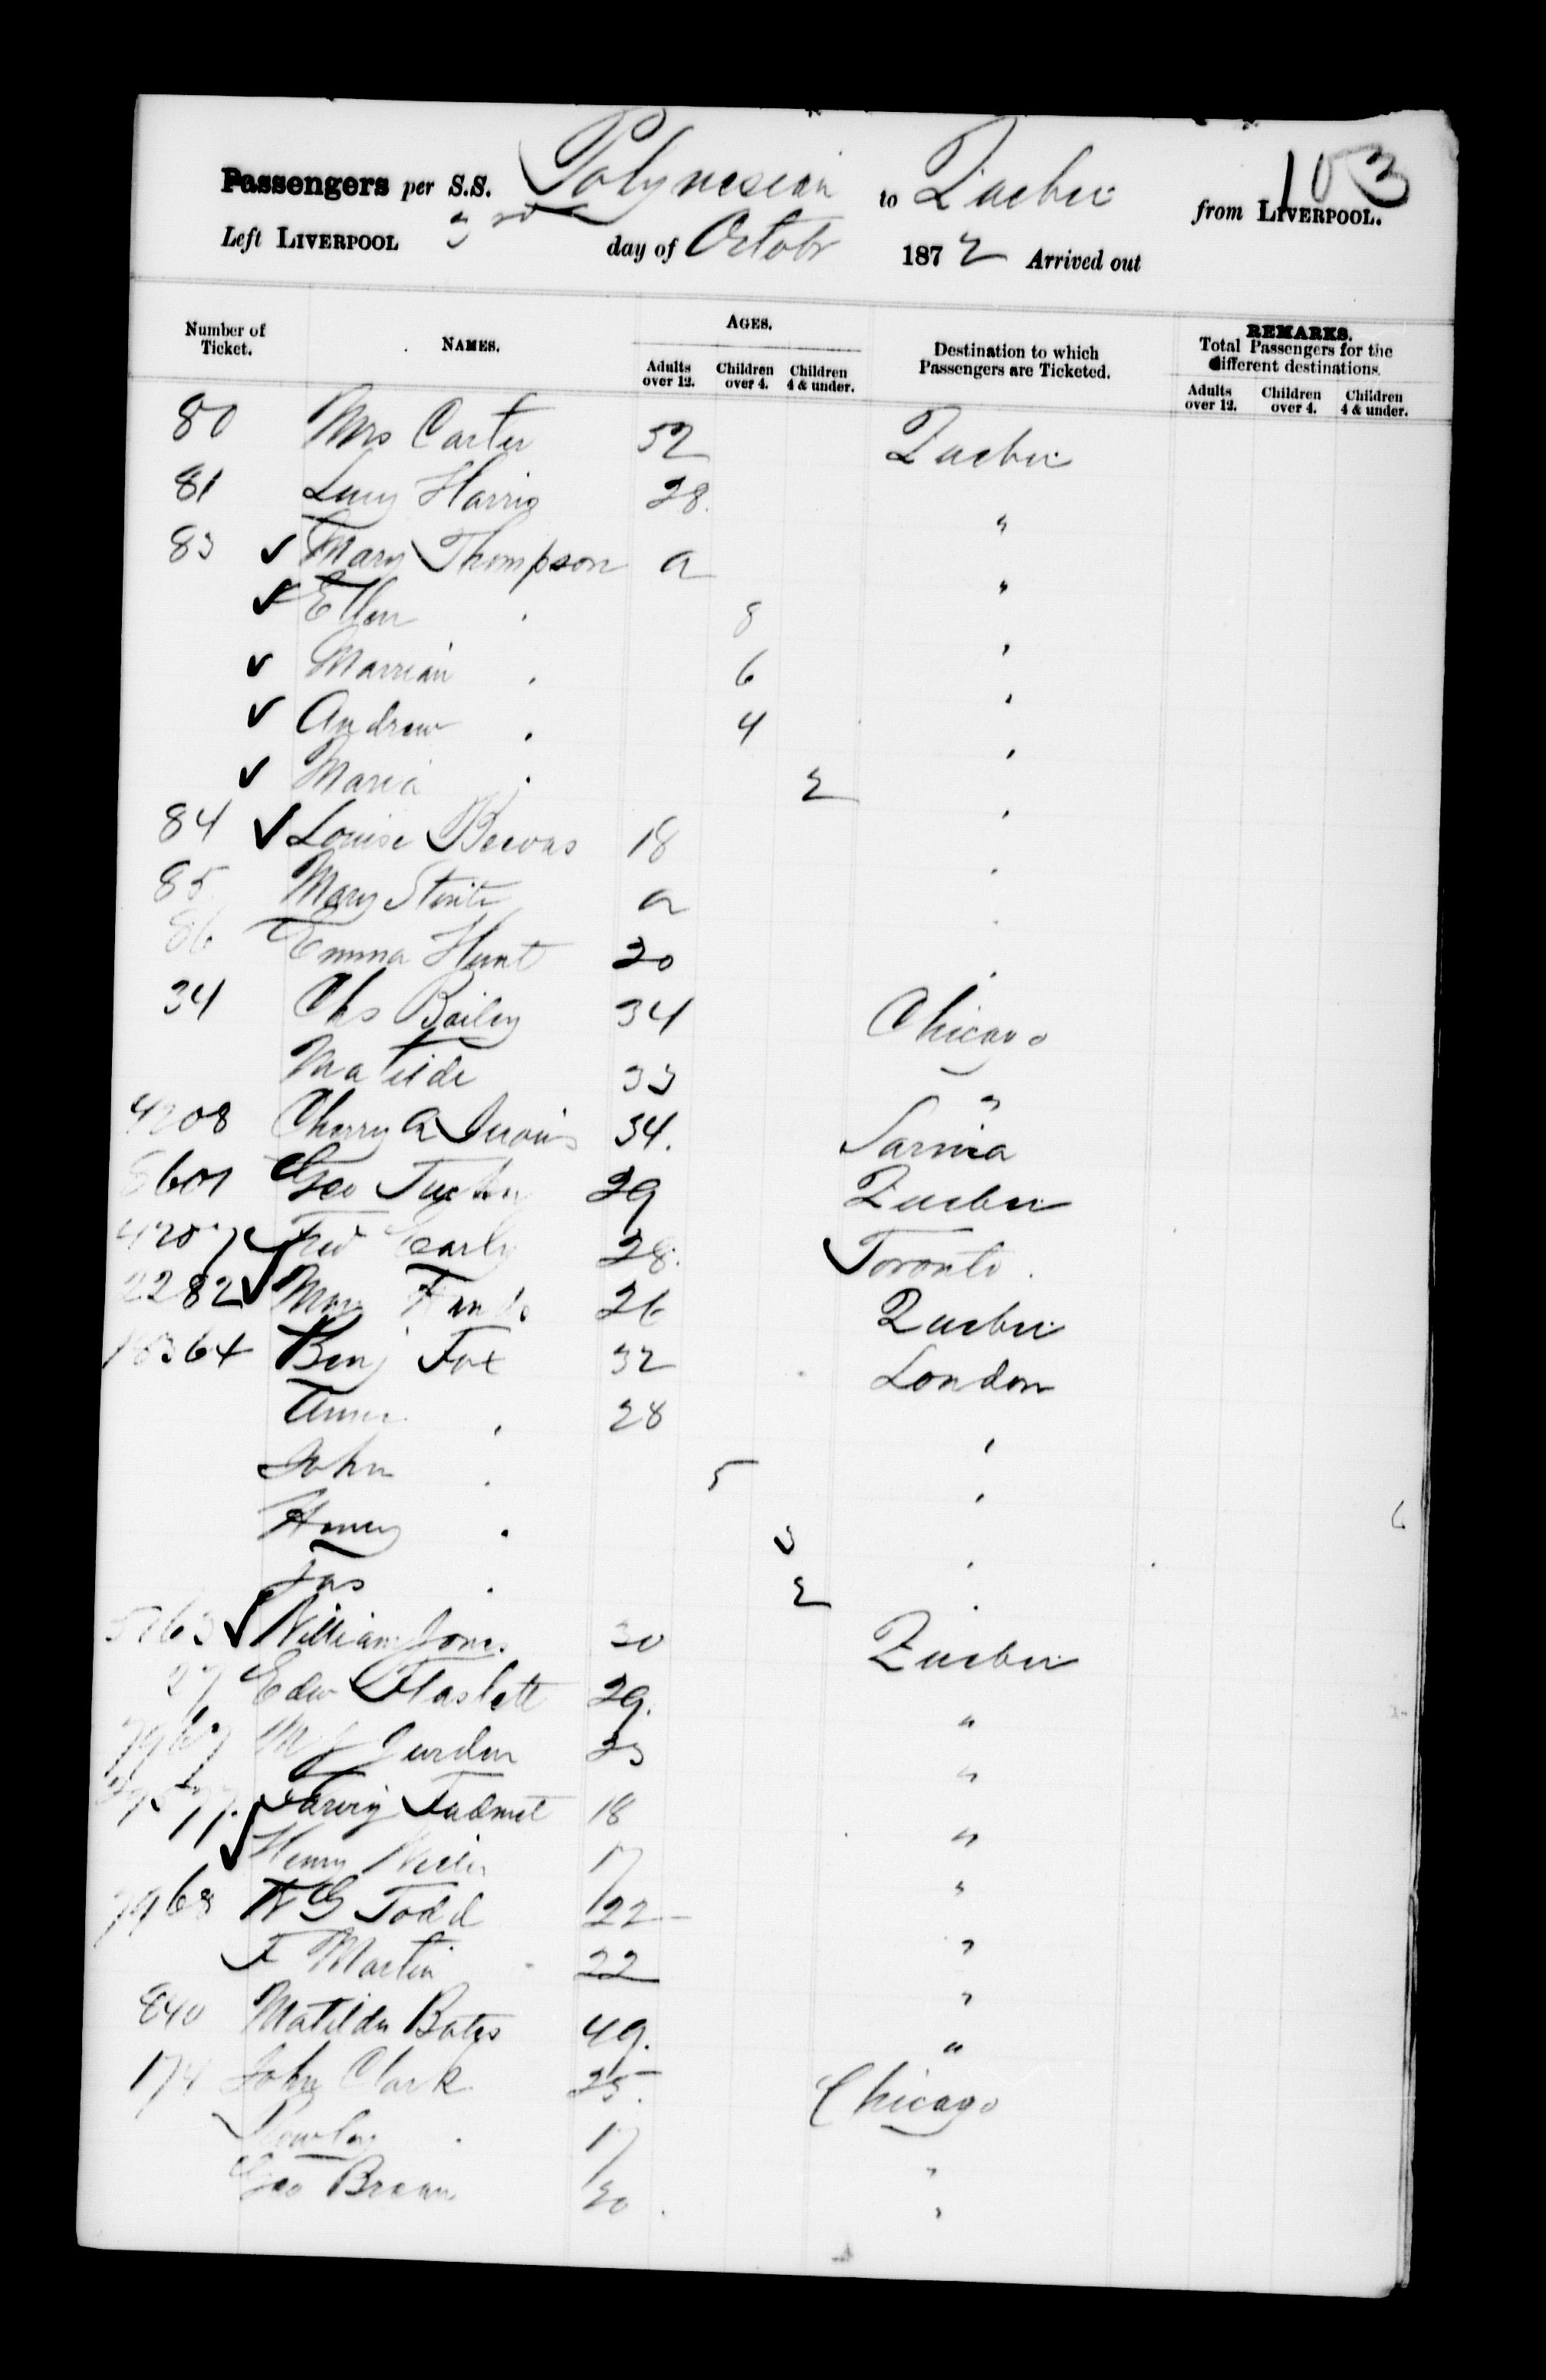 103
Passengers per S.S. Polynesian to Quebec from LIVERPOOL.
Left LIVERPOOL 3rd day of Octobr 1872 Arrived out
Number of Ticket. NAMES. AGES. Adults over 12. Children over 4. Children 4 & under. Destination to which Passengers are Ticketed. REMARKS. Total Passengers for the different destinations. Adults over 12. Children over 4. Children 4 & under.
80 Mrs Carter 52 Quebec
81 Lucy Harris 28. "
83 ✓ Mary Thompson a "
✓ Ellen . 8 "
✓ Marrian . 6 "
✓ Andrew . 4 "
✓ Maria . 2 "
84 ✓ Louise 18 "
85 Mary a "
86 Emma Hunt 20 "
34 Chs Bailey 34 Chicago
Matilde 33 "
4208 Cherry A 34. Sarnia
Geo 29 Quebec
4207 Fred Early 28. Toronto.
2282 ✓ Mary 26 Quebec
18364 Benj Fox 32 London
28 "
John . 5 "
Henry . 3 "
Jas . 2 "
✓ William Jones 30 Quebec
27 Edw 29. "
23 "
18 "
✓ Henry 17 "
7968 W G Todd 22 "
F Martin 22 "
840 Matilda Bates 49. "
174 John Clark 25. Chicago
17 "
Geo 30. "